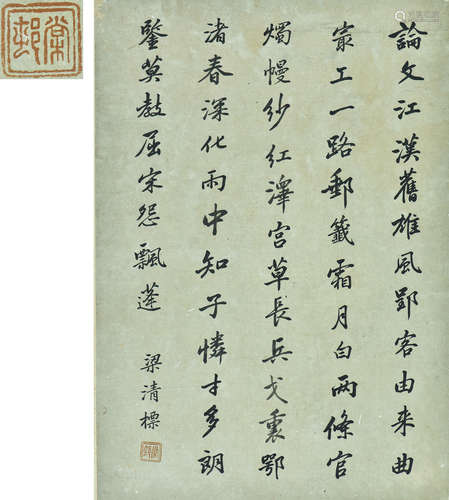 論文江漢舊雄風郢客由来曲
㝡工一路郵籤霜月白兩條官
燭幔紗紅澤宫草長兵戈裏鄂
渚春深化雨中知子憐才多朗
鑒莫教屈宋怨飄蓬 梁清標
棠邨